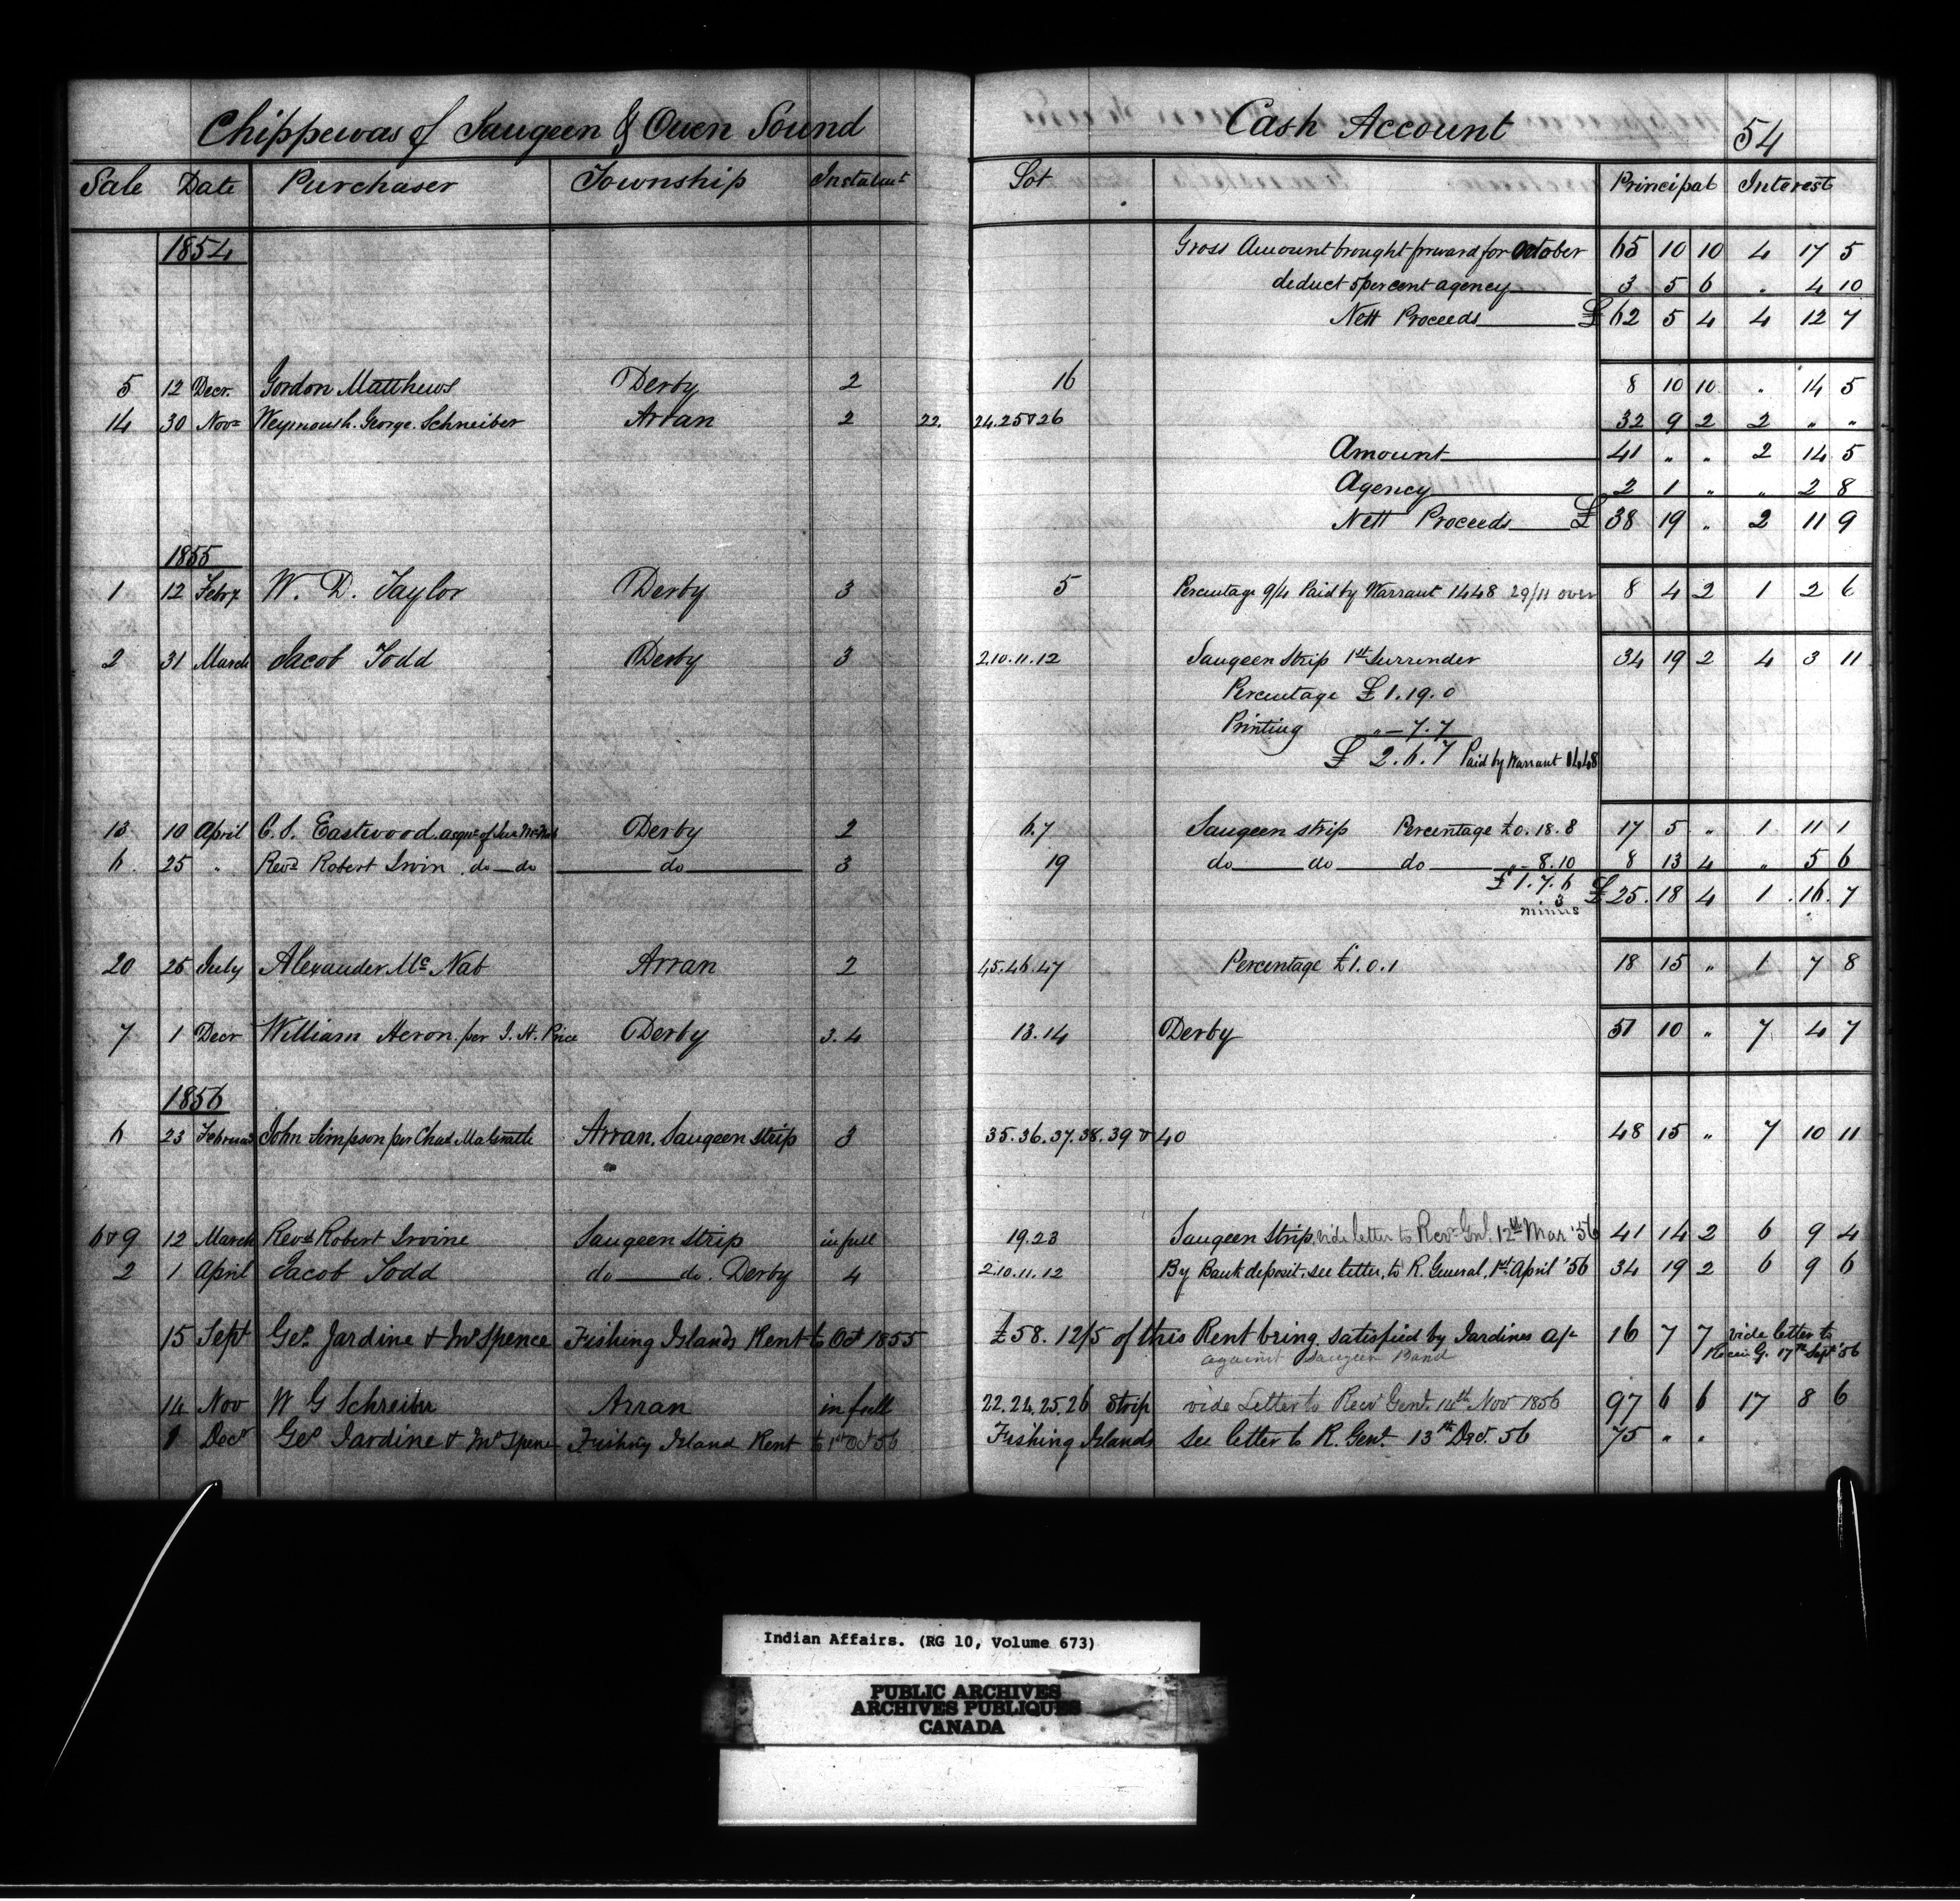 Chippewas of Saugeen & Owen Sound Cash Account 54
Sale Date Purchaser Township Instalmt Lot Principal Interest
1854 Gross Amount brought forward for October 65 10 10 4 17 5
deduct 5 per cent agency 3 5 6 " 4 10
Nett Proceeds £ 62 5 4 4 12 7
5 12 Decr. Gordon Matthews Derby 2 16 8 10 10 " 14 5
14 30 Novr Weymouth. George. Schneiber Arran 2 22. 24.25 & 26 32 9 2 2 " "
Amount 41 " " 2 14 5
Agency 2 1 " " 2 8
Nett Proceeds £ 38 19 " 2 11 9
1855
1 12 Feby W. D. Taylor Derby 3 5 Percentage 9/4 Paid by Warrant 1448 29/11 over 8 4 2 1 2 6
2 31 March Jacob Todd Derby 3 2.10.11.12 Saugeen Strip 1st Surrender 34 19 2 4 3 11
Percentage £ 1.19.0
Printing " - 7.7
£ 2.6.7 Paid by Warrant 1448
13 10 April C. S. Eastwood. Derby 2 6.7 Saugeen strip Percentage £0.18.8 17 5 " 1 11 1
6. 25 " Revd Robert Irvin do—do do 3 19 do do do " - 8.10 8 13 4 " 5 6
£ 1.7.6 £ 25.18 4 1.16.7
3
minus
20 25 July Alexander Mc Nab Arran 2 45.46.47 Percentage £1.0.1 18 15 " 1 7 8
7 1 Decr William Heron. per J. H. Price Derby 3.4 13.14 Derby 51 10 " 7 4 7
1856
6 23 Februa John Simpson per Chas Arran, Saugeen strip 3 35.36.37.38.39 & 40 48 15 " 7 10 11
6 & 9 12 March Revd Robert Irvine Saugeen strip in full 19.23 Saugeen Strip. vide letter to Recr Gnl. 12th Mar '56 41 14 2 6 9 4
2 1 April Jacob Todd do do. Derby 4 2.10.11.12 By Bank deposit. see letter, to R. General, 1st April '56 34 19 2 6 9 6
15 Sept Geo. Jardine & Mr Spence Fishing Islands Rent to Oct 1855 £58.12/5 of this Rent being satisfied by Jardines a/c 16 7 7 vide letter to
against Saugeen Band Receiv G. 17th Sept '56
14 Nov W G Schreiber Arran in full 22.24.25.26 Strip vide Letter to Recr Genl. 14th Nov 1856 97 6 6 17 8 6
1 Decr Geo Jardine & Mr Spence Fishing Island Rent to 1st Oct 56 Fishing Islands See letter to R. Genl. 13th Decr. 56 75 " "
Indian Affairs. (RG 10, Volume 673)
PUBLIC ARCHIVES
ARCHIVES PUBLIQUES
CANADA